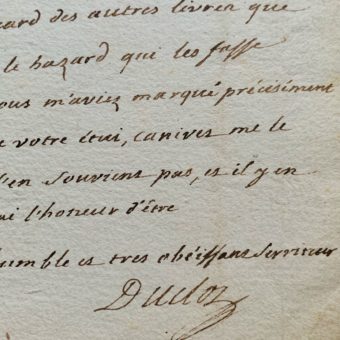 gard des autres livres que
le hazard qui les fasse
vous m'aviez marqué précisément
e votre étui, canives me le
m'en souviens pas, es il y en
ai l'honeur d'être
humble es tres obéissans serviteur
Duclos